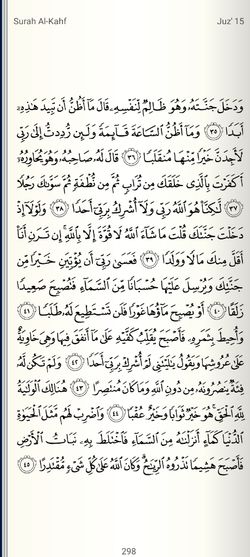 Surah Al-Kahf Juz' 15
وَدَخَلَ جَنَّتَهُۥ وَهُوَ ظَالِمٌ لِّنَفْسِهِۦ قَالَ مَآ أَظُنُّ أَن تَبِيدَ هَٰذِهِۦٓ
أَبَدًا ٣٥ وَمَآ أَظُنُّ ٱلسَّاعَةَ قَآئِمَةً وَلَئِن رُّدِدتُّ إِلَىٰ رَبِّى
لَأَجِدَنَّ خَيْرًا مِّنْهَا مُنقَلَبًا ٣٦ قَالَ لَهُۥ صَاحِبُهُۥ وَهُوَ يُحَاوِرُهُۥٓ
أَكَفَرْتَ بِٱلَّذِى خَلَقَكَ مِن تُرَابٍ ثُمَّ مِن نُّطْفَةٍ ثُمَّ سَوَّىٰكَ رَجُلًا
٣٧ لَّٰكِنَّا۠ هُوَ ٱللَّهُ رَبِّى وَلَآ أُشْرِكُ بِرَبِّىٓ أَحَدًا ٣٨ وَلَوْلَآ إِذْ
دَخَلْتَ جَنَّتَكَ قُلْتَ مَا شَآءَ ٱللَّهُ لَا قُوَّةَ إِلَّا بِٱللَّهِ إِن تَرَنِ أَنَا۠
أَقَلَّ مِنكَ مَالًا وَوَلَدًا ٣٩ فَعَسَىٰ رَبِّىٓ أَن يُؤْتِيَنِ خَيْرًا مِّن
جَنَّتِكَ وَيُرْسِلَ عَلَيْهَا حُسْبَانًا مِّنَ ٱلسَّمَآءِ فَتُصْبِحَ صَعِيدًا
زَلَقًا ٤٠ أَوْ يُصْبِحَ مَآؤُهَا غَوْرًا فَلَن تَسْتَطِيعَ لَهُۥ طَلَبًا ٤١
وَأُحِيطَ بِثَمَرِهِۦ فَأَصْبَحَ يُقَلِّبُ كَفَّيْهِ عَلَىٰ مَآ أَنفَقَ فِيهَا وَهِىَ خَاوِيَةٌ
عَلَىٰ عُرُوشِهَا وَيَقُولُ يَٰلَيْتَنِى لَمْ أُشْرِكْ بِرَبِّىٓ أَحَدًا ٤٢ وَلَمْ تَكُن لَّهُۥ
فِئَةٌ يَنصُرُونَهُۥ مِن دُونِ ٱللَّهِ وَمَا كَانَ مُنتَصِرًا ٤٣ هُنَالِكَ ٱلْوَلَٰيَةُ
لِلَّهِ ٱلْحَقِّ هُوَ خَيْرٌ ثَوَابًا وَخَيْرٌ عُقْبًا ٤٤ وَٱضْرِبْ لَهُم مَّثَلَ ٱلْحَيَوٰةِ
ٱلدُّنْيَا كَمَآءٍ أَنزَلْنَٰهُ مِنَ ٱلسَّمَآءِ فَٱخْتَلَطَ بِهِۦ نَبَاتُ ٱلْأَرْضِ
فَأَصْبَحَ هَشِيمًا تَذْرُوهُ ٱلرِّيَٰحُ وَكَانَ ٱللَّهُ عَلَىٰ كُلِّ شَىْءٍ مُّقْتَدِرًا ٤٥
298